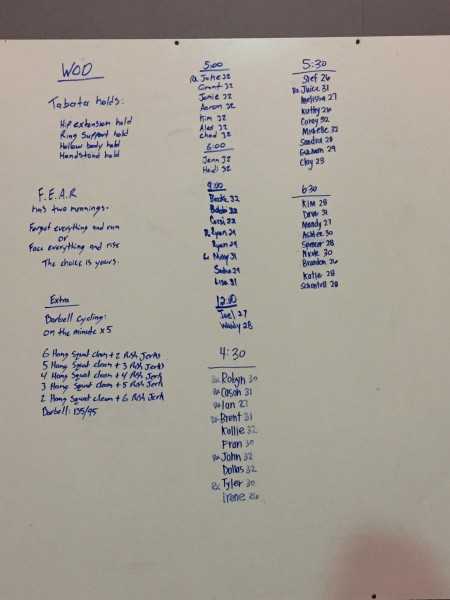 WOD
Tabata holds:
Hip extension hold
Ring support hold
Hollow body hold
Handstand hold
F.E.A.R
has two meanings.
Forget everything and run
or
Face everything and rise
The choice is yours.
Extra
Barbell Cycling:
on the minute x5
6 Hang Squat clean + 2 Push Jerks
5 Hang Squat clean + 3 Push Jerks
4 Hang Squat clean + 4 Push Jerk
3 Hang Squat clean + 5 Push Jerk
2 Hang Squat clean + 6 Push Jerk
Barbell: 135/95
5:00
Rx Jake 32
Grant 32
Jamie 32
Aaron 32
Kim 32
Alex 32
Chad 32
6:00
Jenn 32
Heidi 32
9:00
32
Bobbi 22
22
Ryan 29
Ryan 29
31
29
Lisa 31
12:00
Joel 27
Woody 28
4:30
Rx Robyn 30
Rx Cason 31
Rx Ian 27
Rx Brent 31
Kallie 32
Fran 30
Rx John 32
Dallas 32
Rx Tyler 30
Irene 26
5:30
Stef 26
Rx Juice 31
Melissa 27
Kathy 26
Corey 32
Michelle 32
Sandra 28
29
Clay 23
6:30
Kim 28
Drew 31
Mandy 27
Ashlee 30
Spencer 28
Nicole 30
Brandon 26
Katie 28
Schantell 28